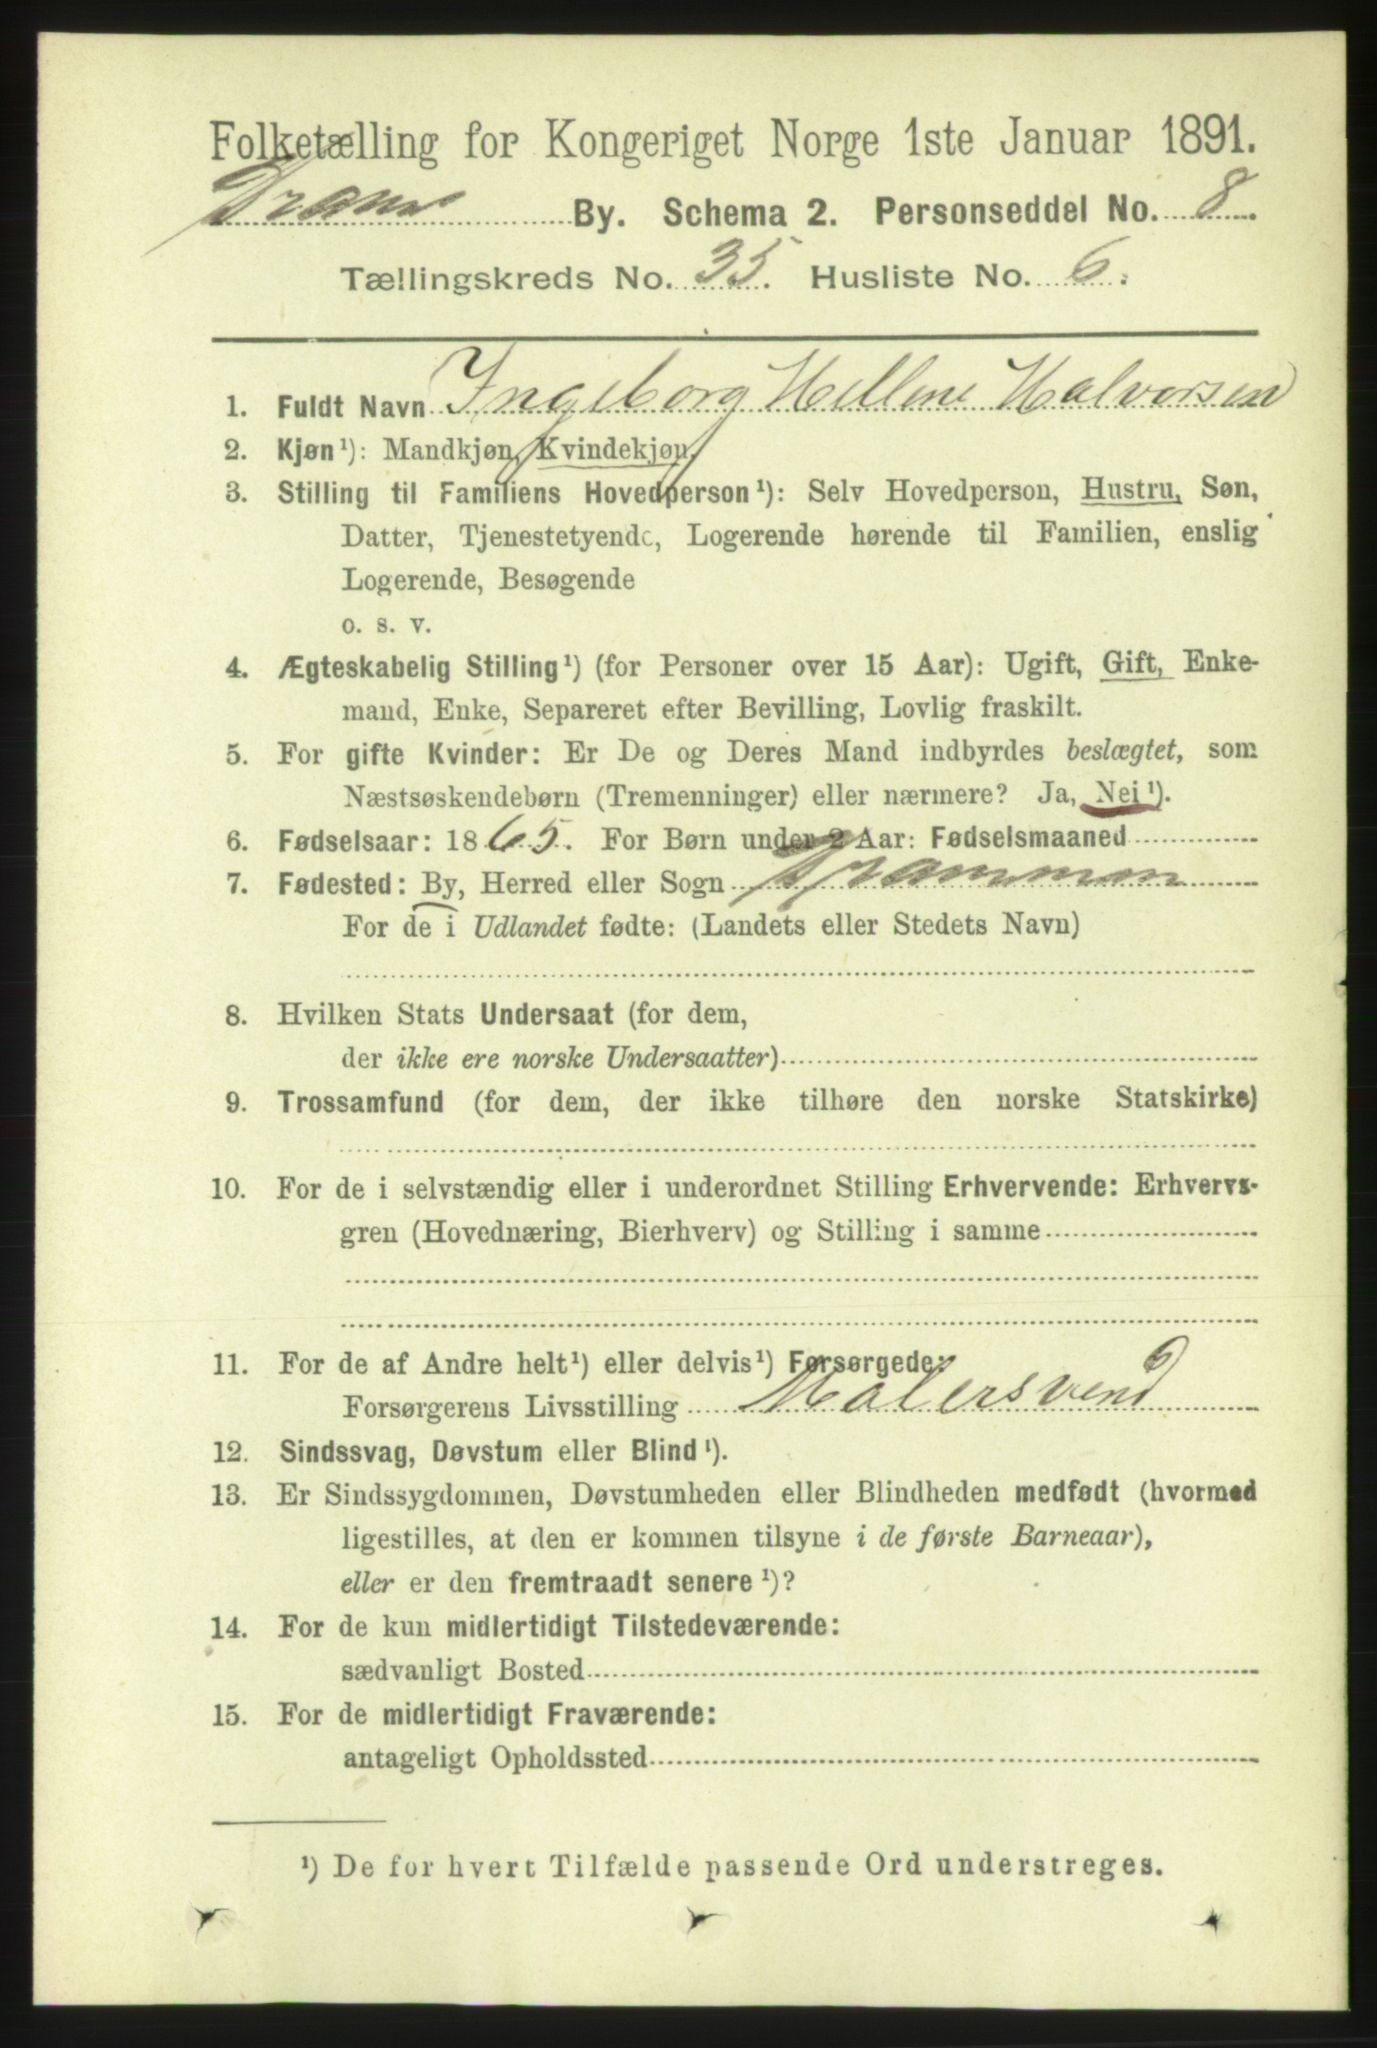 Folketælling for Kongeriget Norge 1ste Januar 1891.
Dramm By. Schema 2. Personseddel No. 8.
Tællingskreds No. 35. Husliste No. 6.
1. Fuldt Navn Ingeborg Hellene Halvorsen
2. Kjøn¹): Mandkjøn, Kvindekjøn.
3. Stilling til Familiens Hovedperson¹): Selv Hovedperson, Hustru, Søn,
Datter, Tjenestetyende, Logerende hørende til Familien, enslig
Logerende, Besøgende
o. s. v.
4. Ægteskabelig Stilling¹) (for Personer over 15 Aar): Ugift, Gift, Enke-
mand, Enke, Separeret efter Bevilling, Lovlig fraskilt.
5. For gifte Kvinder: Er De og Deres Mand indbyrdes beslægtet, som
Næstsøskendebørn (Tremenninger) eller nærmere? Ja, Nei¹).
6. Fødselsaar: 1865. For Børn under 2 Aar: Fødselsmaaned
7. Fødested: By, Herred eller Sogn Drammen
For de i Udlandet fødte: (Landets eller Stedets Navn)
8. Hvilken Stats Undersaat (for dem,
der ikke ere norske Undersaatter)
9. Trossamfund (for dem, der ikke tilhøre den norske Statskirke)
10. For de i selvstændig eller i underordnet Stilling Erhvervende: Erhvervs-
gren (Hovednæring, Bierhverv) og Stilling i samme
11. For de af Andre helt¹) eller delvis¹) Forsørgede:
Forsørgerens Livsstilling Malersvend
12. Sindssvag, Døvstum eller Blind¹).
13. Er Sindssygdommen, Døvstumheden eller Blindheden medfødt (hvormed
ligestilles, at den er kommen tilsyne i de første Barneaar),
eller er den fremtraadt senere¹)?
14. For de kun midlertidigt Tilstedeværende:
sædvanligt Bosted
15. For de midlertidigt Fraværende:
antageligt Opholdssted
¹) De for hvert Tilfælde passende Ord understreges.